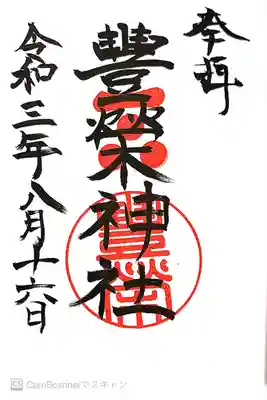 奉拝
豊榮神社
令和三年八月十六日
CS CamScannerでスキャン